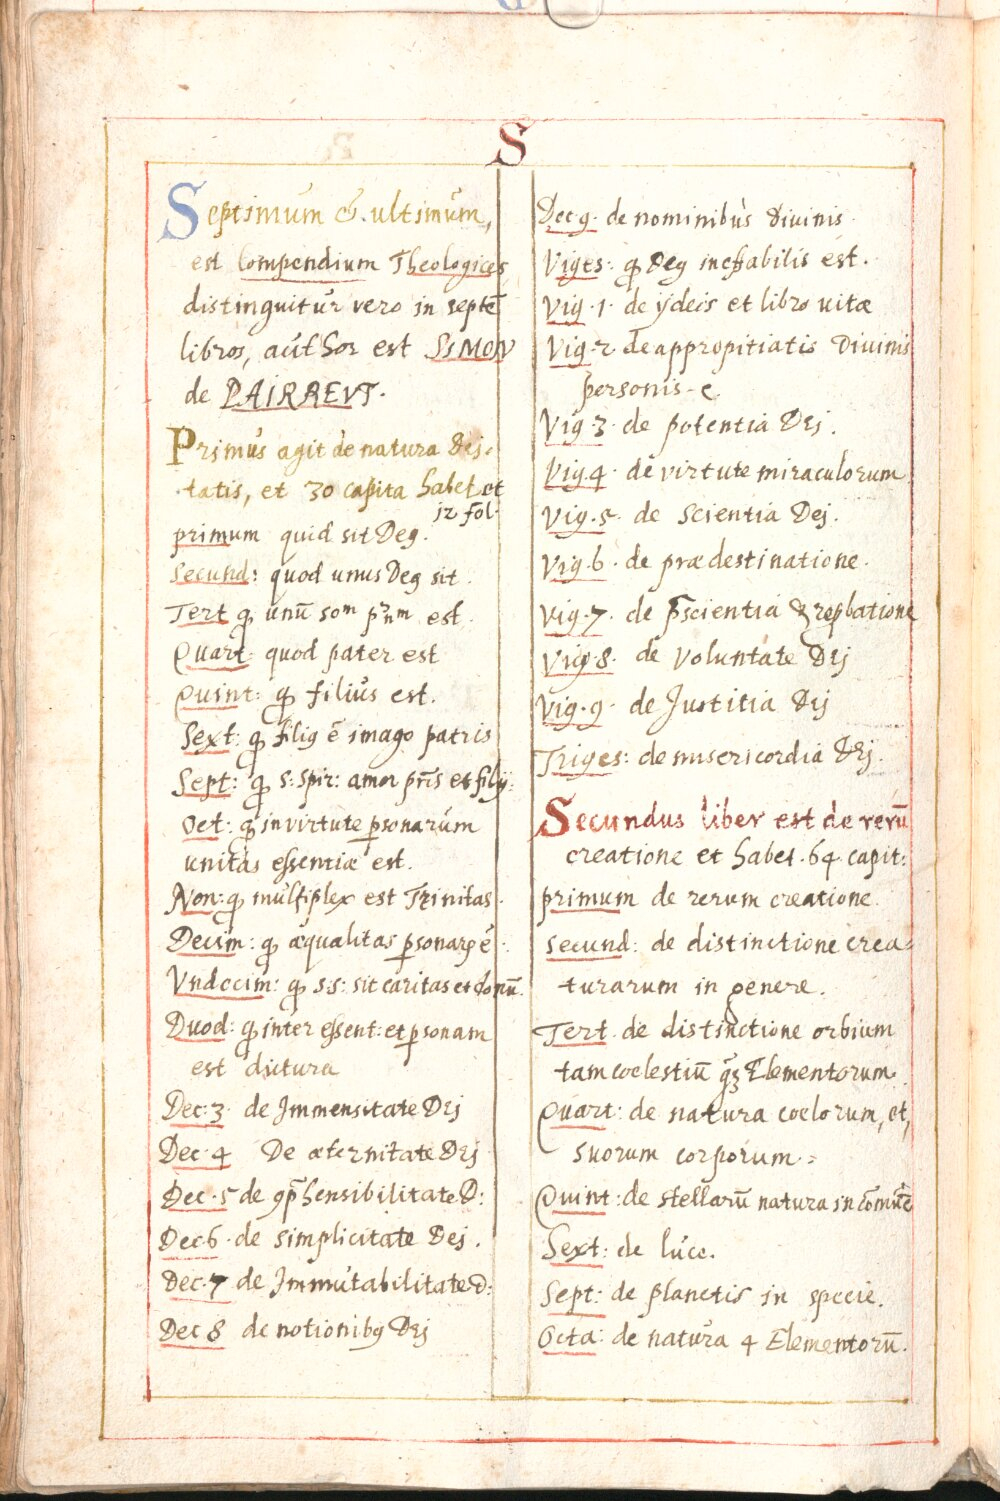 S
Septimum &. ultimum,
est Compendium Theologices
distinguitur vero in septē
libros, author est SsMON
de PAIRREVT.
Primus agit de natura Dej-
tatis, et 30 capita habet et
jz fol.
primum quid sit Deꝯ.
Secund: quod unus Deꝯ sit.
Tert ꝙ unū som prnm est.
Quart: quod pater est
Quint: ꝙ filius est.
Sext: ꝙ filiꝯ ē imago patris
Sept: ꝙ s: spir: amor pr̄is et filij:
Oct: ꝙ in virtute ꝑsonarum
unitas essentiæ est.
Non: ꝙ multiplex est Trinitas.
Decim: ꝙ æqualitas ꝑsonarꝝ ē.
Vndecim: ꝙ s.s: sit caritas et donū.
Duod: ꝙ inter essent: et ꝑsonam
est dictura
Dec: 3. de Jmmensitate Dej
Dec. 4 De æternitate Dej
Dec. 5 de ꝯp̄hensibilitate D:
Dec 6. de simplicitate Dej.
Dec. 7 de Jmmutabilitate D:
Dec 8 de notionibꝯ Dej
Dec 9. de nominibus divinis.
Viges: ꝙ Deꝯ ineffabilis est.
Vig. 1. de ydeis et libro uitæ
Vig. 2 de appropitiatis Divinis
personis - e
Vig. 3. de potentia Dej.
Vig. 4. de virtute miraculorum
Vig. 5. de Scientia Dej.
Vig. 6. de prædestinatione.
Vig. 7. de p̄scientia & reꝓbatione
Vig. 8. de Voluntate Dej
Vig. 9. de Justitia Dej
Triges: de misericordia Dej.
Secundus liber est de rerū
creatione et habet. 64. capit:
primum de rerum creatione.
Secund: de distinctione crea=
turarum in genere.
Tert. de distinctione orbium
tam coelestiū ꝙ̃ꝫ Elementorum.
Quart: de natura coelorum, et,
suorum corporum. =
Quint: de stellarū natura in com̄uē
Sext: de luce.
Sept: de planetis in specie.
Octa: de natura 4 Elementorū.